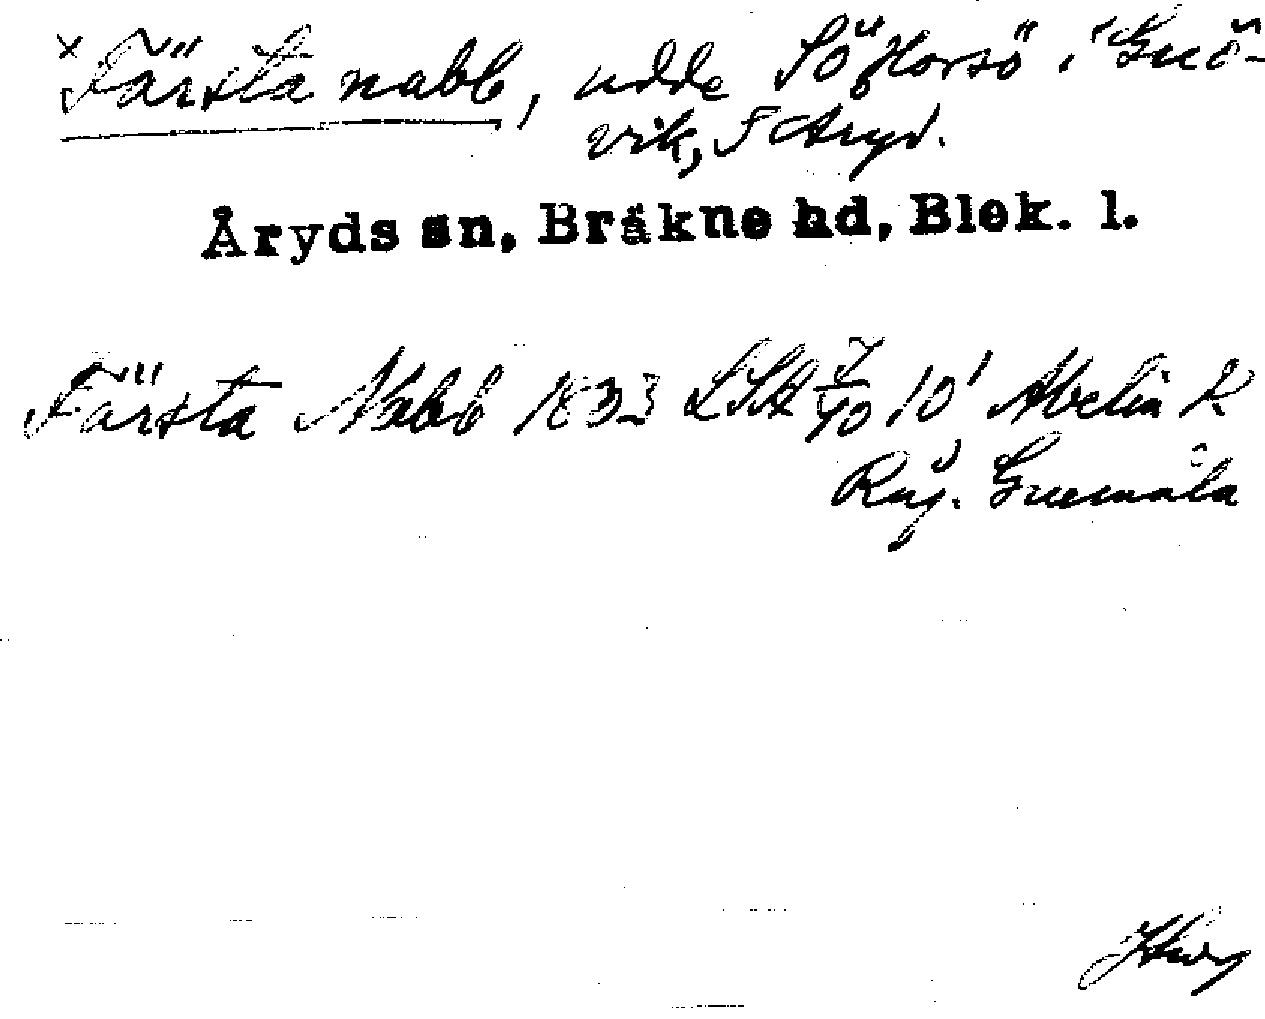 × Färsta nabb, udde SÖ Horsö i Gnö-
vik, S Åryd.
Åryds sn, Bräkne hd, Blek. l.
Färsta Nabb 1833 LSA 7/40 10' Abelin K
Reg. Gnemåla